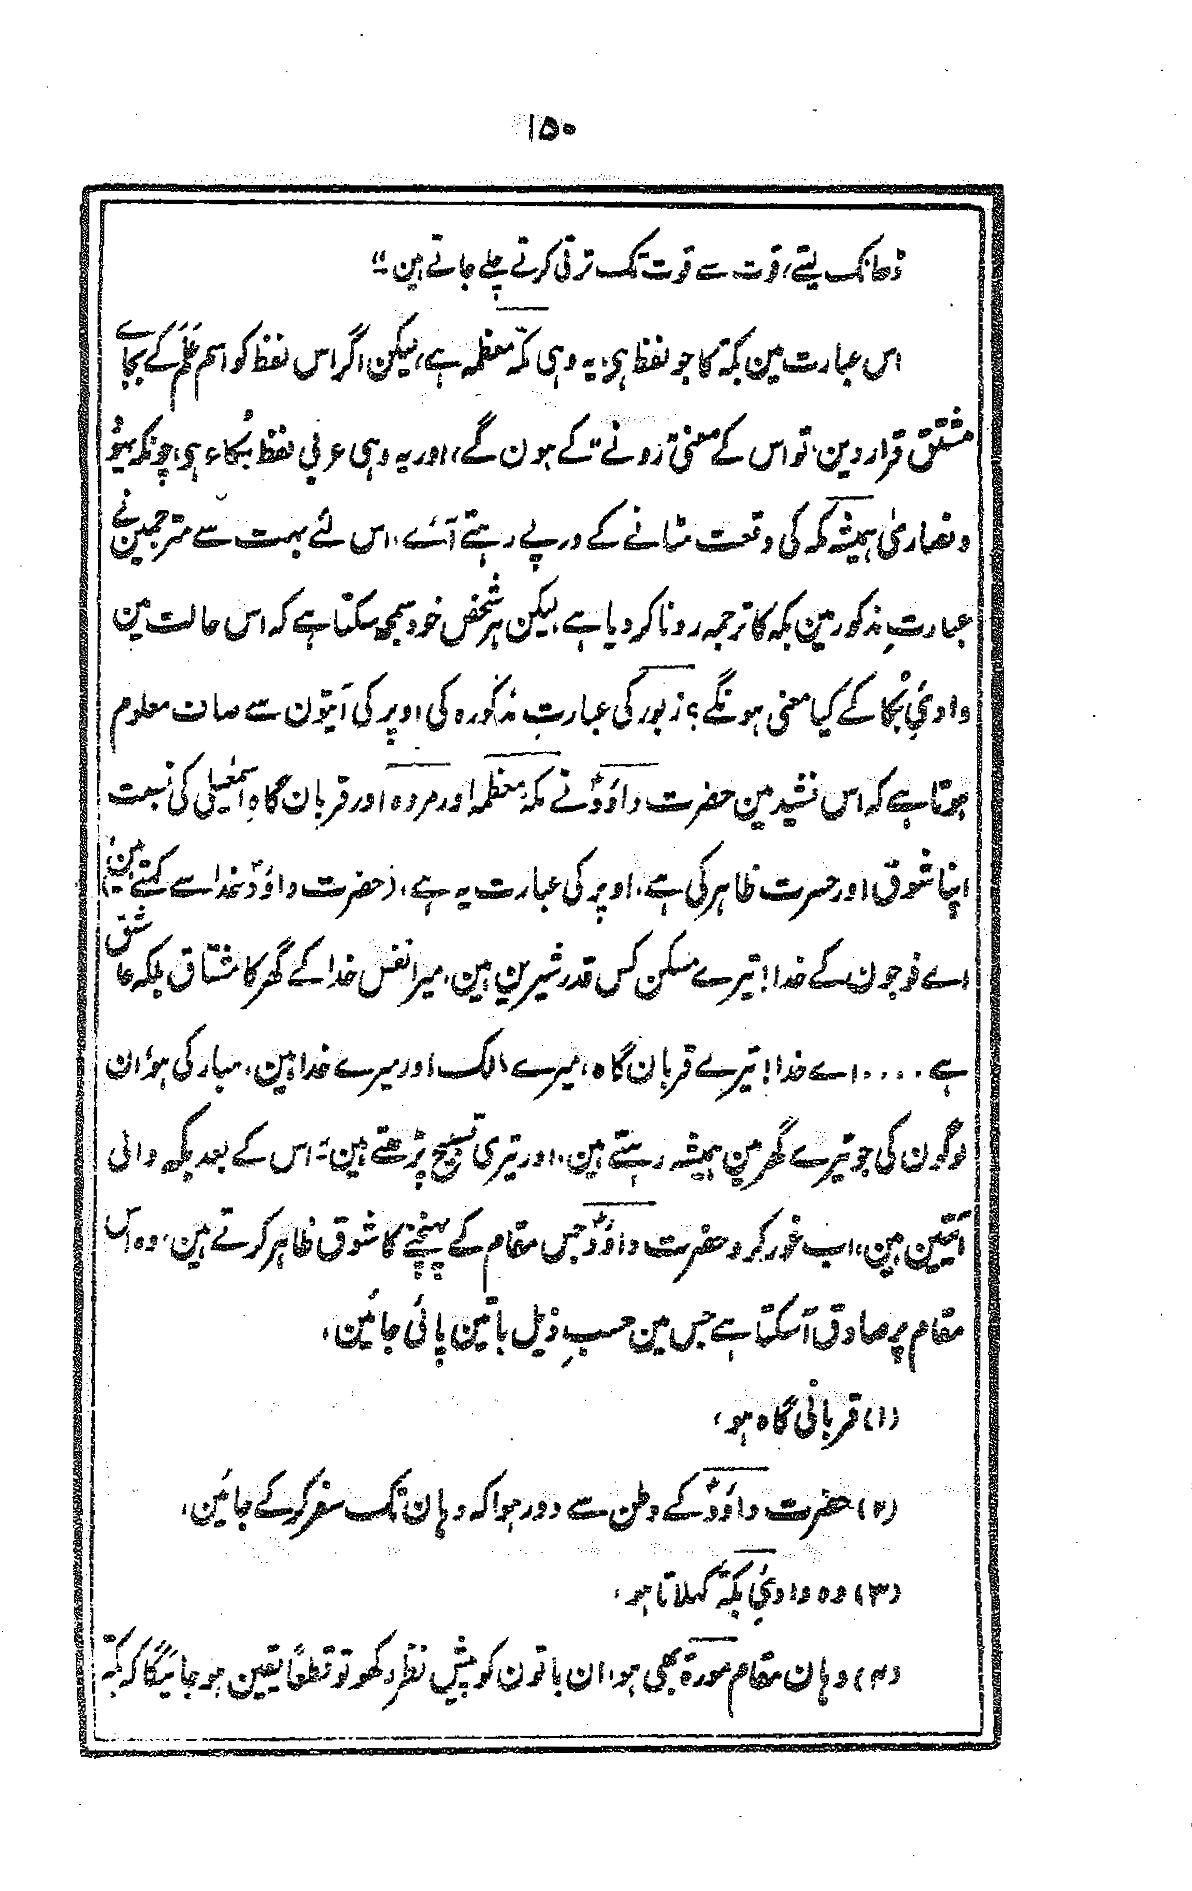 ۱۵۰
ڈھانک لیتے، قوت سے قوت تک ترقی کرتے چلے جاتے ہین ۔"
اس عبارت مین بکّہ کا جو لفظ ہی، یہ وہی مکّہ معظمہ ہے، لیکن اگر اس لفظ کو اسم عَلَم کے بجاے
مشتق قرار دین، تو اس کے معنی "رونے" کے ہون گے، اور یہ وہی عربی لفظ بُکاء ہی، چونکہ یہوُد
و نصاریٰ ہمیشہ مکہ کی وقعت مٹانے کے درپے رہتے آئے، اس لئے بہت سے مترجمین نے
عبارتِ مذکور مین بکہ کا ترجمہ رونا کر دیا ہے، لیکن ہر شخص خود سمجھ سکتا ہے کہ اس حالت مین
وادیِ بُکا کے کیا معنی ہونگے؟ زبور کی عبارتِ مذکورہ کی اوپر کی آیتون سے صاف معلوم
ہوتا ہے کہ اس نشید مین حضرت داؤدؑ نے مکۂ معظمہ اور مروہ اور قربان گاہِ اسمٰعیلی کی نسبت
اپنا شوق اور حسرت ظاہر کی ہے، اوپر کی عبارت یہ ہے، (حضرت داؤدؑ خدا سے کہتے ہین)
اے فوجون کے خدا! تیرے مسکن کس قدر شیرین ہین، میرا نفس خدا کے گھر کا مشتاق بلکہ عاشق
ہے .... اے خدا! تیرے قربان گاہ، میرے مالک اور میرے خدا ہین، مبارکی ہو اُن
لوگون کی جو تیرے گھر مین ہمیشہ رہتے ہین، اور تیری تسبیح پڑھتے ہین"۔ اس کے بعد بکہ والی
آیتین ہین، اب غور کرو حضرت داؤدؑ جس مقام کے پہنچنے کا شوق ظاہر کرتے ہین، وہ اس
مقام پر صادق آسکتا ہے جس مین حسبِ ذیل باتین پائی جائین،
(۱) قربانی گاہ ہو،
(۲) حضرت داؤدؑ کے وطن سے دور ہو کہ وہان تک سفر کرکے جائین،
(۳) وہ وادیِ بکّہ کہلاتا ہو،
(۴) وہان مقام مورۃ بھی ہو، ان باتون کو پیش نظر رکھو تو قطعاً یقین ہو جائیگا کہ بکّہ